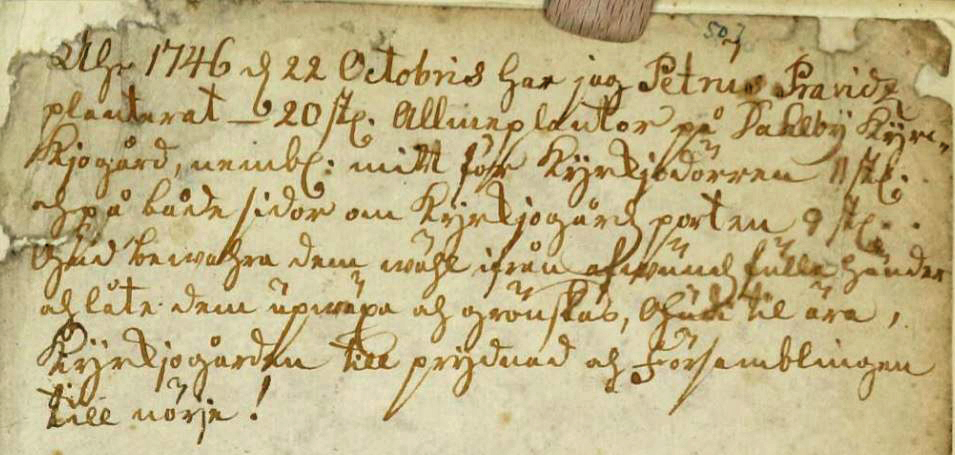 507
Åhr 1746 d 22 Octobris har jag Petrus Pravitz
planterat – 20 stÿ. Allmeplantor på Dahlby Kÿr-
Kjogård, nembl: mitt för Kÿrkjodörren 11 stÿ.
och på både sidor om Kÿrkjogårds porten 9 stÿ.
Gud bewahra dem wähl ifrån afwund fulla händer
och låte dem upwäxa och grönskas, Gudi til ära,
Kÿrkjogården till prÿdnad och Församblingen
till nöije!